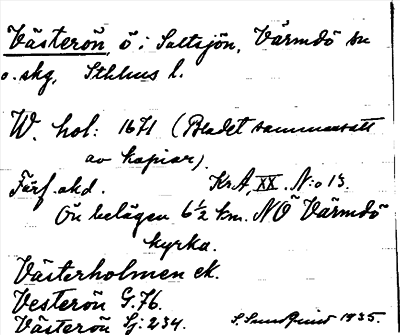 Västerön, ö i Saltsjön, Värmdö sn
o. skg, Sthlms l.
W. hol: 1671 (Bladet sammansatt
av kopior).
Förf. okd. Kr. A, XX. N:o 13.
Ön belägen 6½ km. NÖ Värmdö
kyrka.
Västerholmen ek.
Vesterön G. 76.
Västerön Sj: 234. S. Sundquist 1935.